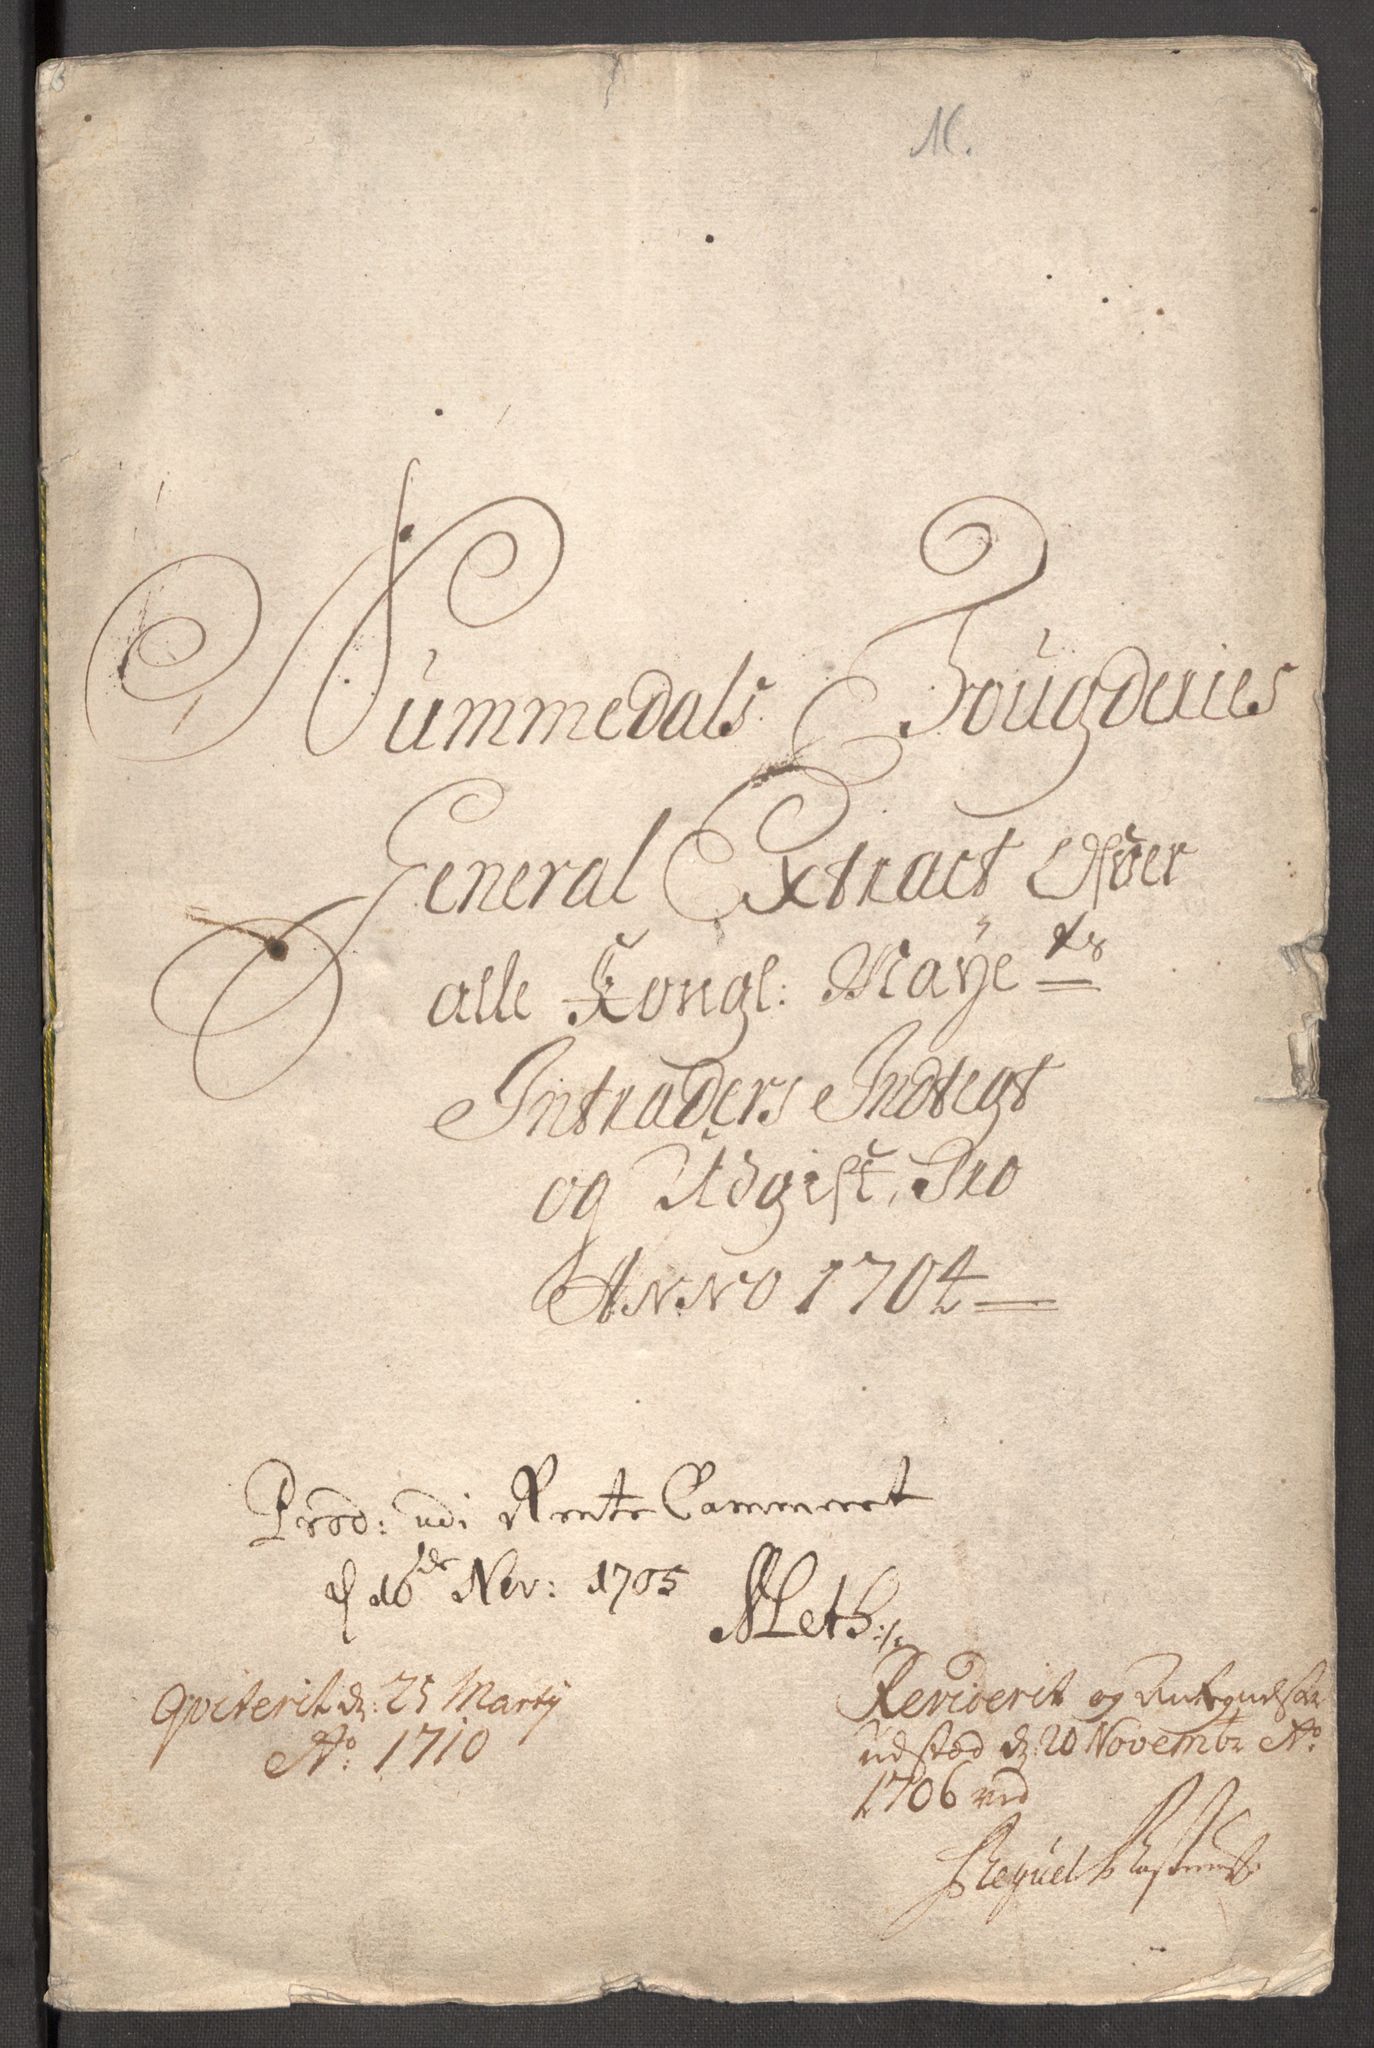 Nummedals Fougderies
General Extract Ofver
alle Kongl: Maye ts
Intraders Indtegt
og Udgift, Pro
Anno 1704
Prod: udi Rente Cammeret
d 16de Nov: 1705
Qviterit d: 25 Marty
Ao: 1710
Reviderit og Antegnelser
udstæd d: 20 Novembr Ao:
1706 ved